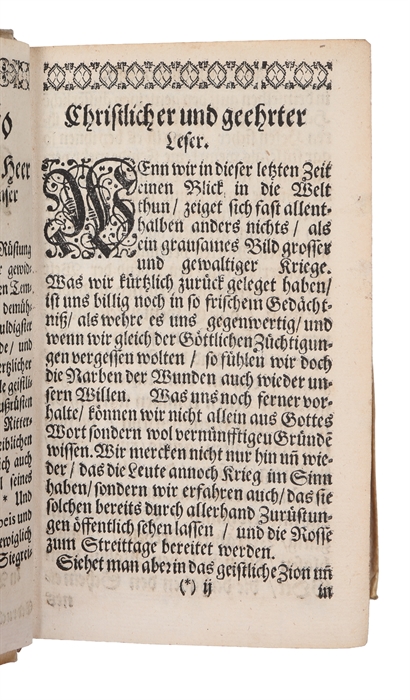 ſo
Heer
ſer
Rüſtung
r gewid-
en Tem-
demüh-
uldigſter
de/ und
ertzlicher
le geiſtli-
ußrüſten
Ritter-
eiblichen
ich auch
l ſeines
* Und
eis und
ewiglich
Siegrei-
Chriſtlicher und geehrter
Leſer.
WEnn wir in dieſer letzten Zeit
einen Blick in die Welt
thun/ zeiget ſich faſt allent-
halben anders nichts/ als
ein grauſames Bild groſſer
und gewaltiger Kriege.
Was wir kürtzlich zurück geleget haben/
iſt uns billig noch in ſo friſchem Gedächt-
niß/ als wehre es uns gegenwertig/ und
wenn wir gleich der Göttlichen Züchtigun-
gen vergeſſen wolten/ ſo fühlen wir doch
die Narben der Wunden auch wieder un-
ſern Willen. Was uns noch ferner vor-
halte/ können wir nicht allein aus Gottes
Wort ſondern wol vernünfftigen Gründē
wiſſen. Wir mercken nicht nur hin uñ wie-
der/ das die Leute annoch Krieg im Sinn
haben/ ſondern wir erfahren auch/ das ſie
ſolchen bereits durch allerhand Zurüſtun-
gen öffentlich ſehen laſſen/ und die Roſſe
zum Streittage bereitet werden.
Siehet man aber in das geiſtliche Zion uñ
(*) ij in